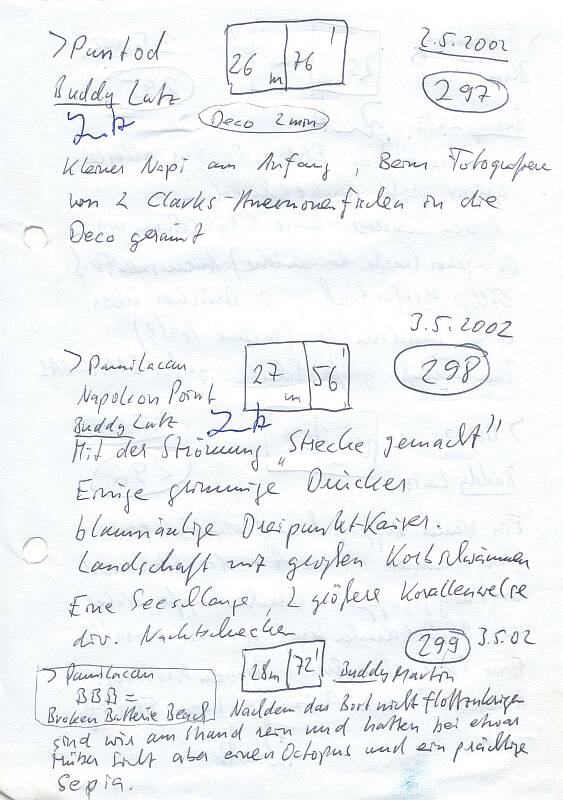 >Puntod
26 m 76'
2.5.2002
Buddy Lutz
297
Lutz
Deco 2min
Kleiner Napi am Anfang, Beim Fotografieren
von 2 Clarks-Anemonenfischen in die
Deco geramt
3.5.2002
>Pamilacan
27 m 56'
298
Napoleon Point
Buddy Lutz
Lutz
Mit der Strömung „Strecke gemacht"
Einige grimmige Drücker
blaumäulige Dreipunkt-Kaiser.
Landschaft mit großen Korbschwämmen
Eine Seeschlange, 2 größere Korallenwelse
div. Nacktschnecken
299 3.5.02
>Pamilacan
28m 72'
Buddy Martin
BBB =
Broken Butterie Beach
Nachdem das Boot nicht flott
sind wir am Strand rein und hatten bei etwas
trüber Sicht aber einen Octopus und ein prächtige
Sepia.